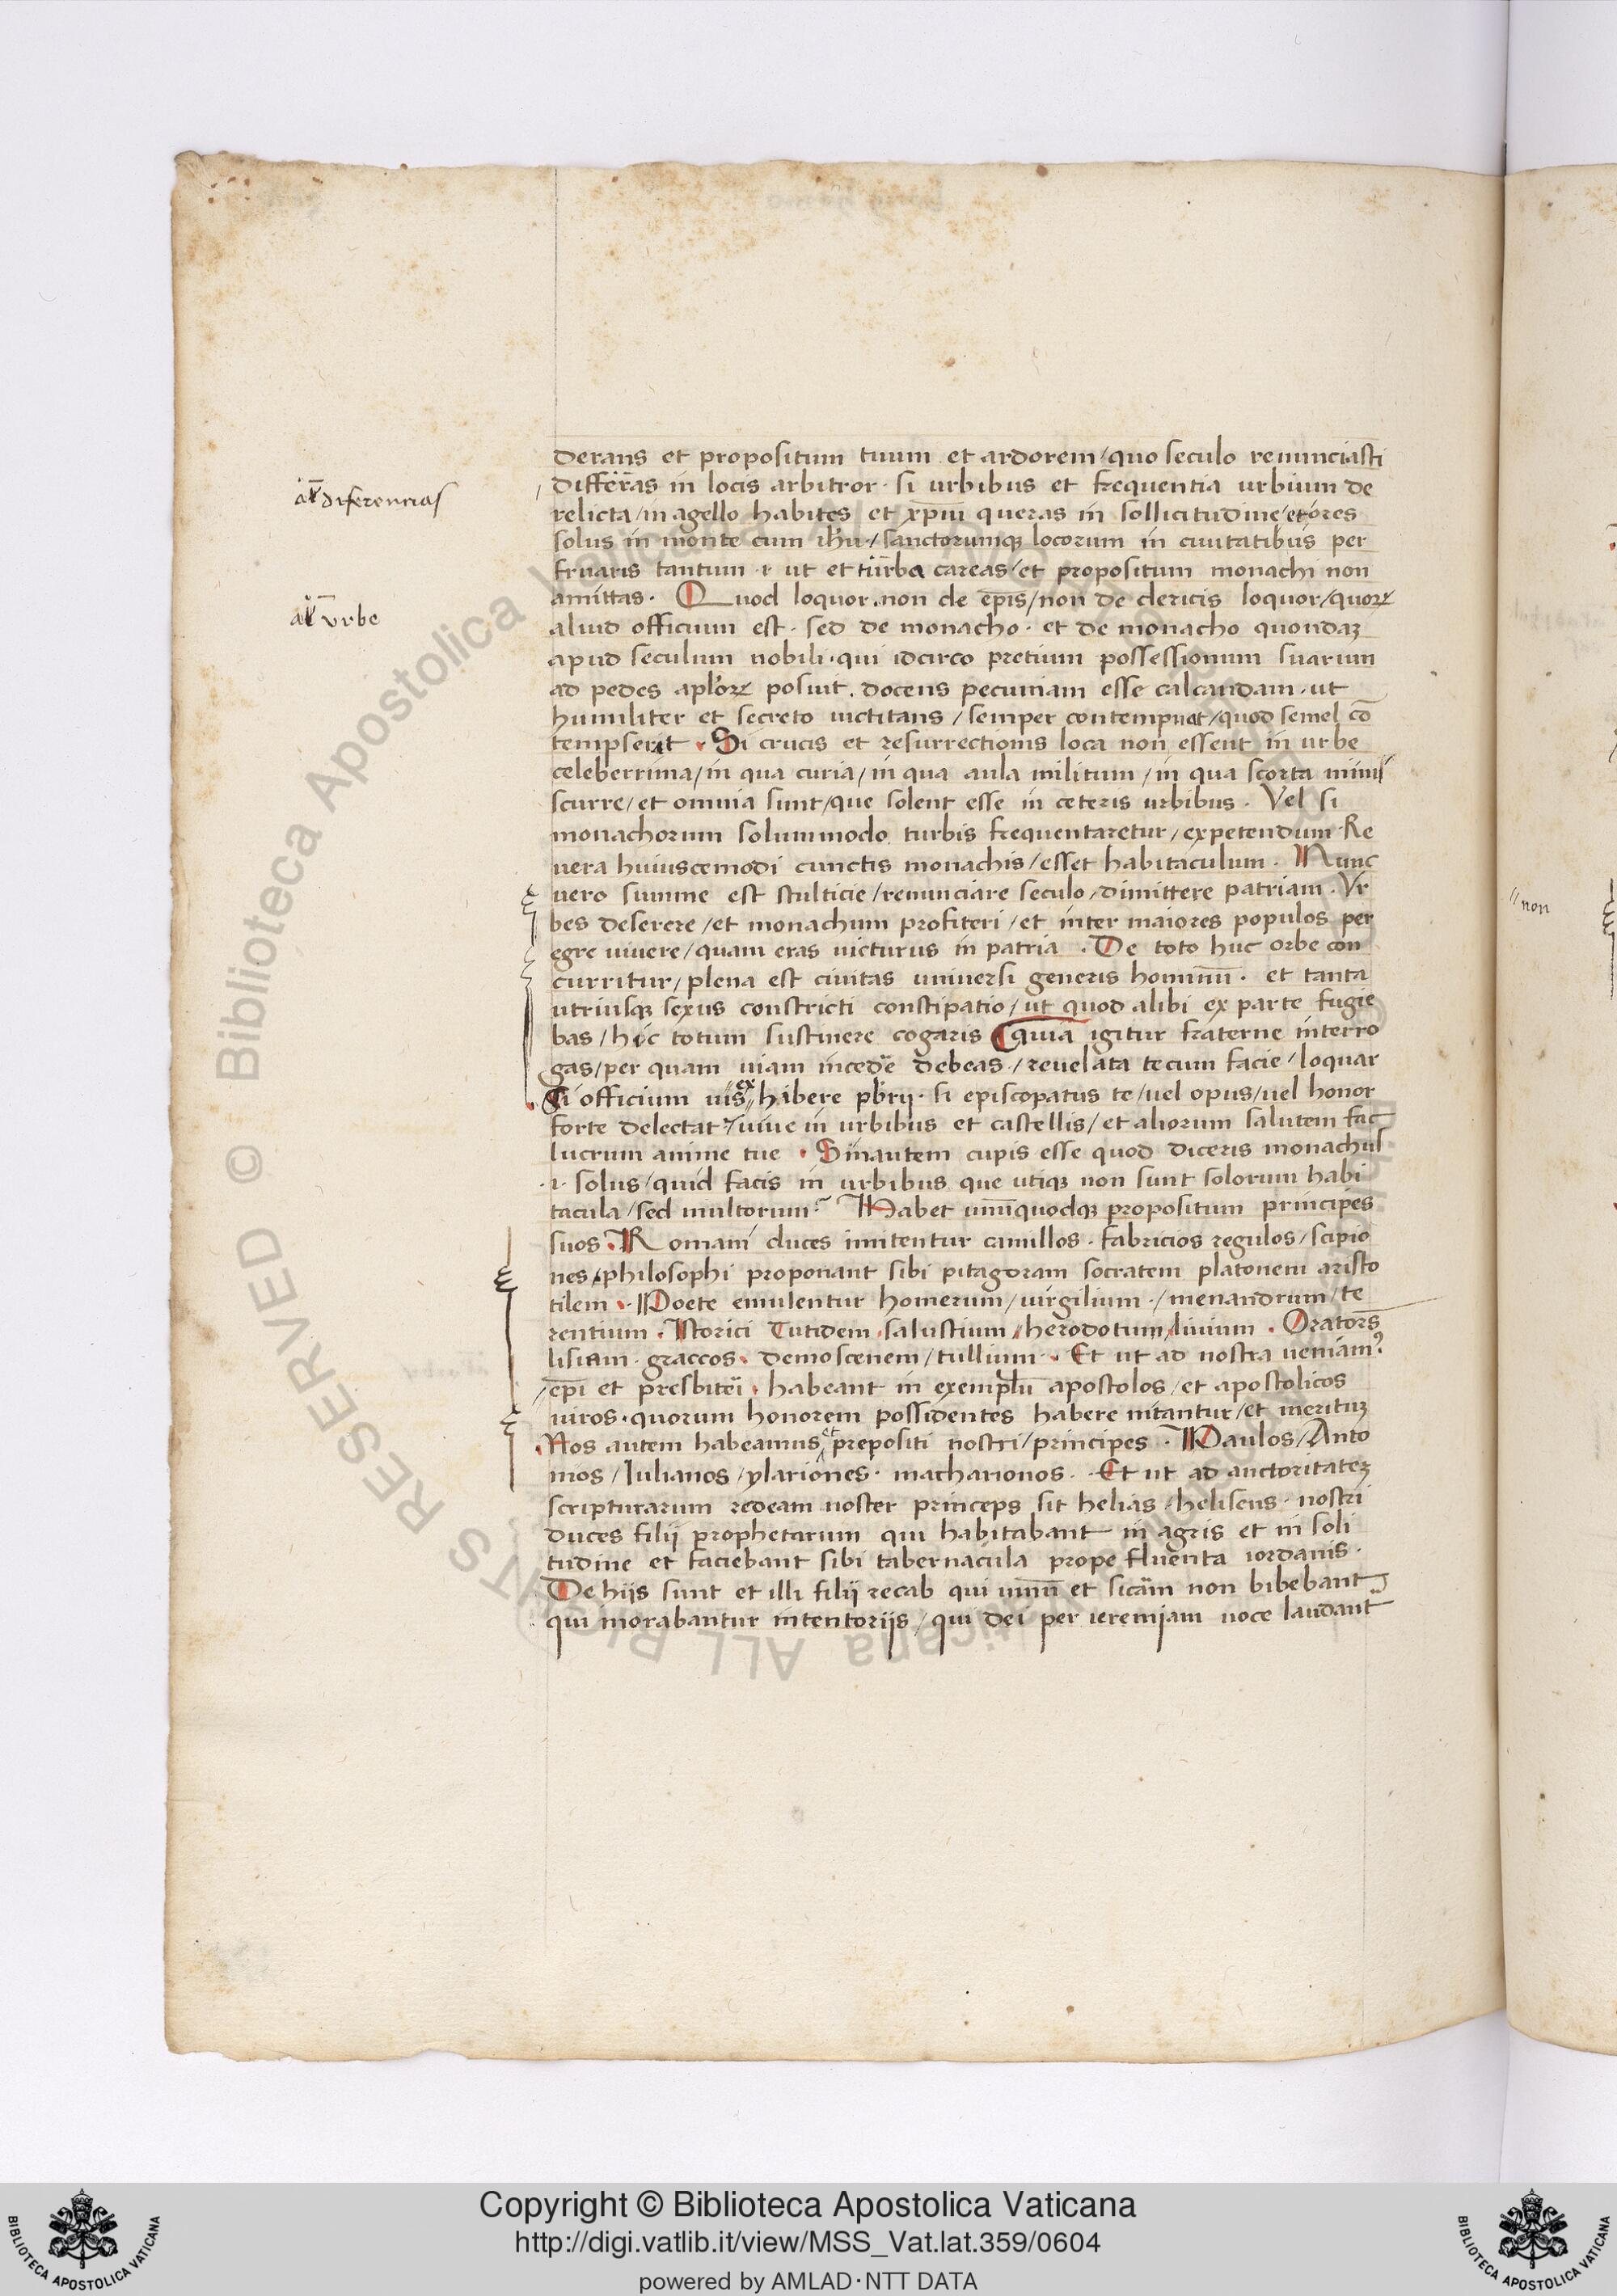 derans et propositum tuum et ardorem/quo seculo renunciasti
differ̄as in locis arbitror · si urbibus et frequentia urbium de
al̄ diferencias
relicta/in agello habites et xp̄m queras in sollicitudine/et ores
solus in monte cum ih̄u·/sanctorumq locorum in ciuitatibus per
fruaris tantum · ı ut et turba careas/et propositum monachi non
amittas · Quod loquor·non de ep̄is/non de clericis loquor/quorꝝ
al̄ vrbe
aliud officium est · sed de monacho · et de monacho quondaȝ
apud seculum nobili·qui idcirco pretium possessionum suarum
ad pedes apl̄orꝝ posuit . docens pecuniam esse calcandam·ut
humiliter et secreto uictitans / semper contempnat/quod semel cō
tempserit · Si crucis et resurrectionis loca non essent in urbe
celeberrima/in qua curia/in qua aula militum/in qua scorta mimi
scurre/et omnia sunt/que solent esse in ceteris urbibus · Vel si
monachorum solummodo turbis frequentaretur/expetendum·Re
uera huiuscemodi cunctis monachis/esset habitaculum · Nunc
uero summe est stulticie/renunciare seculo/dimittere patriam·Vr
bes deserere/et monachum profiteri/et inter maiores populos per
egre uiuere/quam eras uicturus in patria · De toto huc orbe con
curritur/plena est ciuitas uniuersi generis hominū · et tanta
utriusq sexus constricti constipatio/ut quod alibi ex parte fugie
bas/hic totum sustinere cogaris quia igitur fraterne interro
gas/per quam uiam incedē debeas/reuelata tecum facie/loquar
Si officium uis ex hibere pb̄rij · si episcopatus te/uel opus/uel honor
forte delectat/uiue in urbibus et castellis/et aliorum salutem fac
lucrum anime tue · Sinautem cupis esse quod diceris monachus
·ı· solus/quid facis in urbibus que utiq non sunt solorum habi
tacula/sed multorum? Habet unūquodq propositum principes
suos · Romani duces imitentur camillos · fabricios regulos/scipio
nes/philosophi proponant sibi pitagoram socratem platonem aristo
tilem · Poete emulentur homerum/uirgilium·/menandrum/te
rentium · Istorici Tutidem·salustium/herodotum/liuium · Orators̄
lisiam · graccos · demoscenem/tullium · Et ut ad nostra ueniam⹎
/ep̄i et presbitēi · habeant in exemplū apostolos/et apostolicos
uiros·quorum honorem possidentes habere nitantur/et merituȝ
·Nos autem habeamus et prepositi nostri/principes · Paulos/Anto
nios/Iulianos/ylariones · macharionos · Et ut ad auctoritateȝ
scripturarum redeam noster princeps sit helias·heliseus · nostri
duces filij prophetarum qui habitabant in agris et in soli
tudine et faciebant sibi tabernacula prope fluenta iordanis ·
De hijs sunt et illi filij recab qui uinū et sicām non bibebant
qui morabantur intentorijs/qui dei per ieremiam uoce laudant
non
Copyright © Biblioteca Apostolica Vaticana
http://digi.vatlib.it/view/MSS_Vat.lat.359/0604
powered by AMLAD·NTT DATA